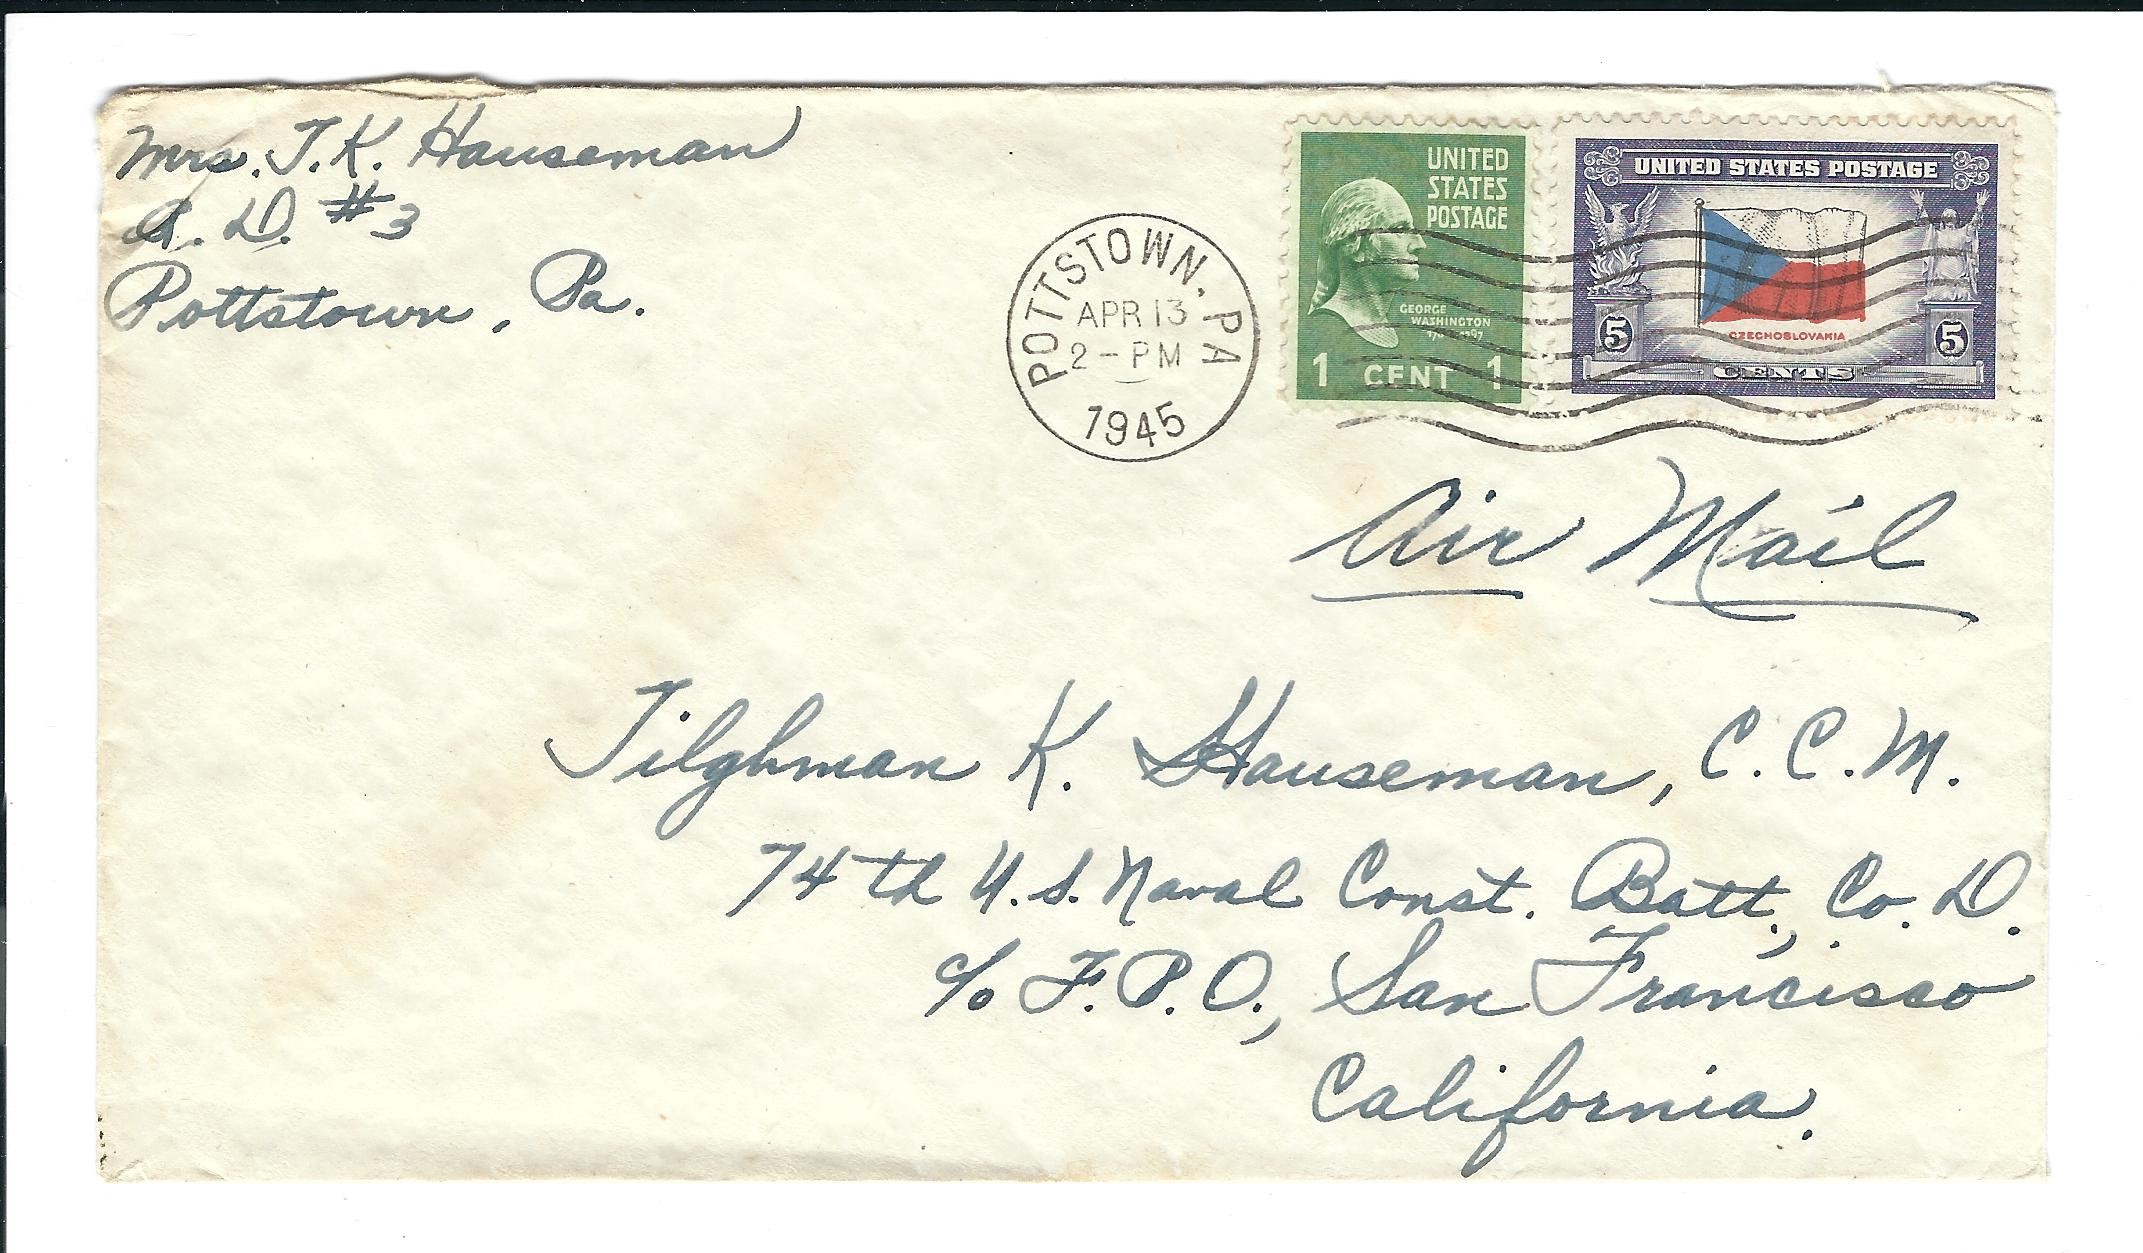 Mrs. T. K. Hauseman
R. D. #3
Pottstown, Pa.
POTTSTOWN, PA
APR 13
2 - PM
1945
UNITED
STATES
POSTAGE
GEORGE
WASHINGTON
1 CENT 1
UNITED STATES POSTAGE
CZECHOSLOVAKIA
5 5
CENTS
Air Mail
Tilghman K. Hauseman, C. C. M.
74th U. S. Naval Const. Batt., Co. D.
c/o F. P. O., San Francisco
California.